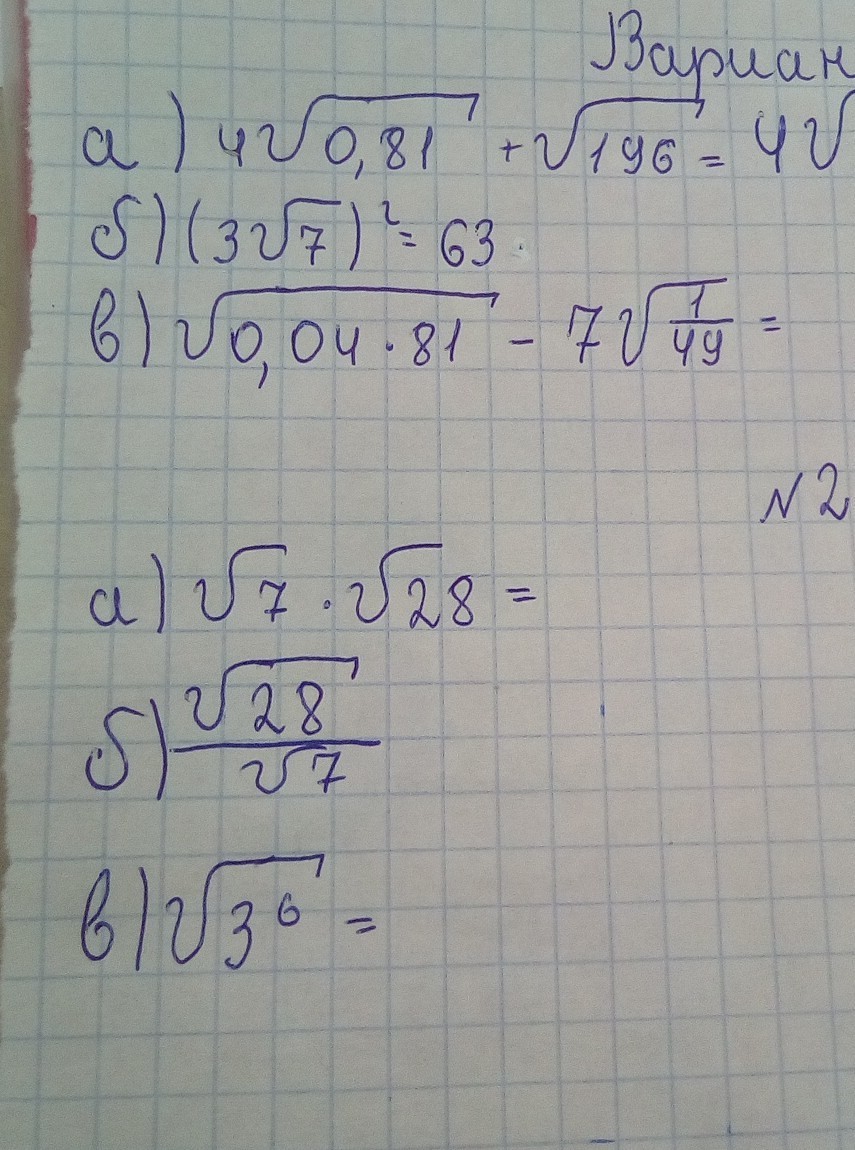 Вариан
а) 4√0,81 + √196 = 4√
б) (3√7)² = 63
в) √0,04·81 - 7√1/49 =
N2
а) √7 · √28 =
б) √28/√7
в) √3⁶ =